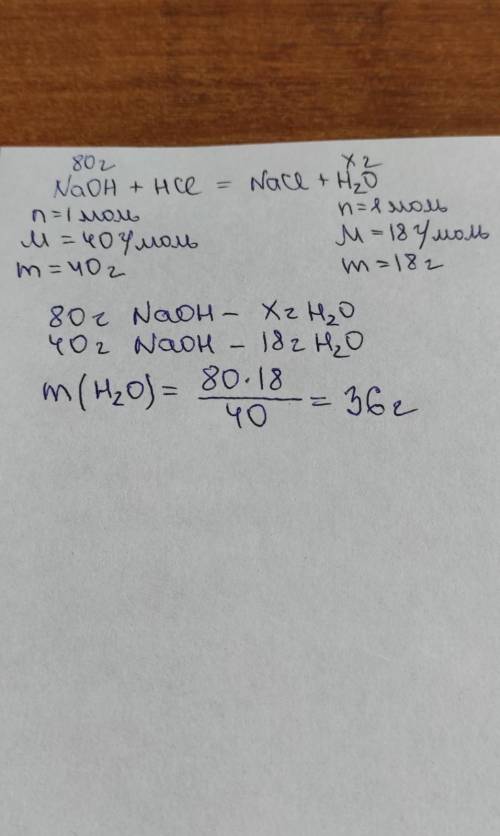 80г xг
NaOH + HCl = NaCl + H₂O
n=1моль n=1моль
M=40г/моль M=18г/моль
m=40г m=18г
80г NaOH – xг H₂O
40г NaOH – 18г H₂O
m(H₂O) = 80·18/40 = 36г